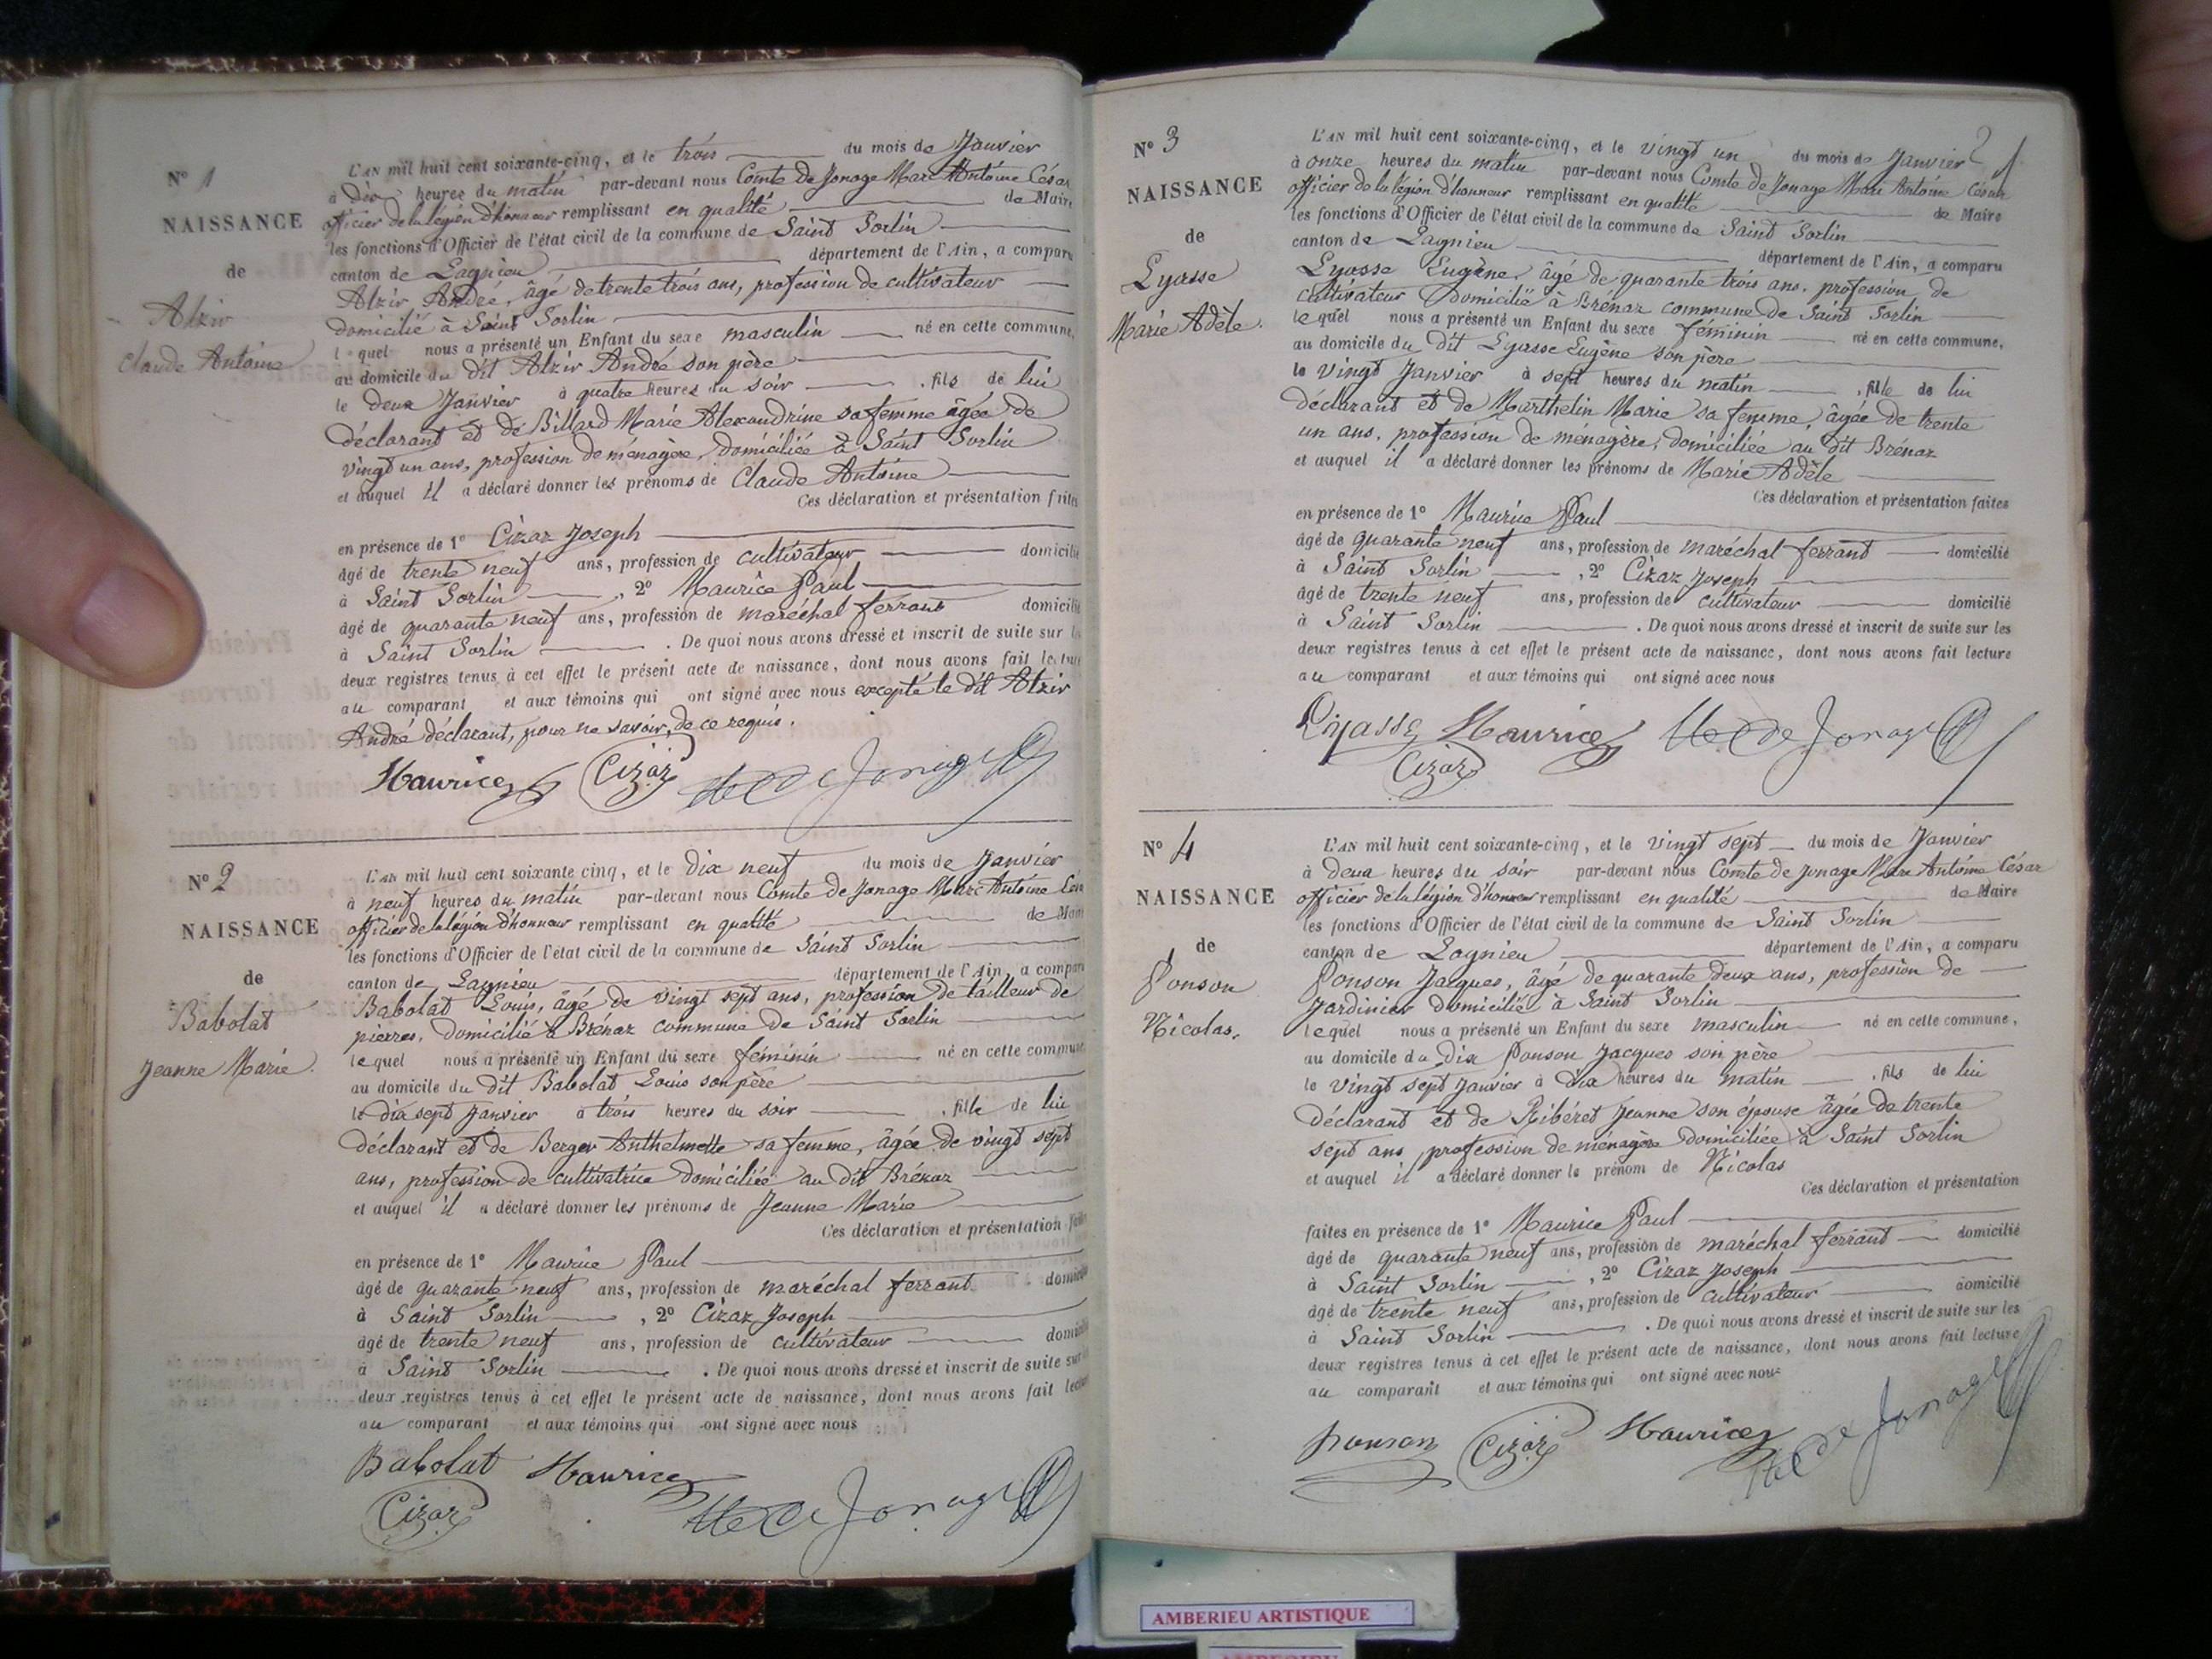 N° 1
NAISSANCE
de
Alzir
Claude Antoine
L'AN mil huit cent soixante-cinq, et le trois du mois de Janvier
à Dix heures du matin par-devant nous Comte de Jonage Marc Antoine César
officier de la légion d'honneur remplissant en qualité de Maire
les fonctions d'Officier de l'état civil de la commune de Saint Sorlin
canton de Lagnieu département de l'Ain, a comparu
Alzir André, âgé de trente trois ans, profession de cultivateur
domicilié à Saint Sorlin
lequel nous a présenté un Enfant du sexe masculin né en cette commune,
au domicile du dit Alzir André son père
le deux Janvier à quatre heures du soir, fils de lui
déclarant et de Billard Marie Alexandrine sa femme âgée de
vingt un ans, profession de ménagère, domiciliée à Saint Sorlin
et auquel il a déclaré donner les prénoms de Claude Antoine
Ces déclaration et présentation faites
en présence de 1° Cizaz Joseph
âgé de trente neuf ans, profession de cultivateur domicilié
à Saint Sorlin, 2° Maurice Paul
âgé de quarante neuf ans, profession de maréchal ferrant domicilié
à Saint Sorlin. De quoi nous avons dressé et inscrit de suite sur les
deux registres tenus à cet effet le présent acte de naissance, dont nous avons fait lecture
au comparant et aux témoins qui ont signé avec nous excepté le dit Alzir
André déclarant, pour ne savoir, de ce requis.
Maurice Cizaz de Jonage
N° 2
NAISSANCE
de
Babolat
Jeanne Marie.
L'AN mil huit cent soixante cinq, et le Dix neuf du mois de Janvier
à neuf heures du matin par-devant nous Comte de Jonage Marc Antoine César
officier de la légion d'honneur remplissant en qualité de Maire
les fonctions d'Officier de l'état civil de la commune de Saint Sorlin
canton de Lagnieu département de l'Ain, a comparu
Babolat Louis, âgé de vingt sept ans, profession de tailleur de
pierres, domicilié à Brénaz commune de Saint Sorlin
lequel nous a présenté un Enfant du sexe féminin né en cette commune
au domicile du dit Babolat Louis son père
le dix sept Janvier à trois heures du soir, fille de lui
déclarant et de Berger Anthelmette sa femme, âgée de vingt sept
ans, profession de cultivatrice domiciliée au dit Brénaz
et auquel il a déclaré donner les prénoms de Jeanne Marie
Ces déclaration et présentation faites
en présence de 1° Maurice Paul
âgé de quarante neuf ans, profession de maréchal ferrant domicilié
à Saint Sorlin, 2° Cizaz Joseph
âgé de trente neuf ans, profession de cultivateur domicilié
à Saint Sorlin. De quoi nous avons dressé et inscrit de suite sur
deux registres tenus à cet effet le présent acte de naissance, dont nous avons fait lecture
au comparant et aux témoins qui ont signé avec nous
Babolat Maurice
Cizaz de Jonage
N° 3
NAISSANCE
de
Lyasse
Marie Adèle.
L'AN mil huit cent soixante-cinq, et le vingt un du mois de Janvier
à onze heures du matin par-devant nous Comte de Jonage Marc Antoine César
officier de la légion d'honneur remplissant en qualité de Maire
les fonctions d'Officier de l'état civil de la commune de Saint Sorlin
canton de Lagnieu département de l'Ain, a comparu
Lyasse Eugène, âgé de quarante trois ans, profession de
cultivateur domicilié à Brénaz commune de Saint Sorlin
lequel nous a présenté un Enfant du sexe féminin né en cette commune,
au domicile du dit Lyasse Eugène son père
le vingt Janvier à sept heures du matin, fille de lui
déclarant et de Marthelin Marie sa femme, âgée de trente
un ans, profession de ménagère, domiciliée au dit Brénaz
et auquel il a déclaré donner les prénoms de Marie Adèle
Ces déclaration et présentation faites
en présence de 1° Maurice Paul
âgé de quarante neuf ans, profession de maréchal ferrant domicilié
à Saint Sorlin, 2° Cizaz Joseph
âgé de trente neuf ans, profession de cultivateur domicilié
à Saint Sorlin. De quoi nous avons dressé et inscrit de suite sur les
deux registres tenus à cet effet le présent acte de naissance, dont nous avons fait lecture
au comparant et aux témoins qui ont signé avec nous
Lyasse Maurice de Jonage
Cizaz
N° 4
NAISSANCE
de
Ponson
Nicolas.
L'AN mil huit cent soixante-cinq, et le vingt sept du mois de Janvier
à deux heures du soir par-devant nous Comte de Jonage Marc Antoine César
officier de la légion d'honneur remplissant en qualité de Maire
les fonctions d'Officier de l'état civil de la commune de Saint Sorlin
canton de Lagnieu département de l'Ain, a comparu
Ponson Jacques, âgé de quarante deux ans, profession de
Jardinier domicilié à Saint Sorlin
lequel nous a présenté un Enfant du sexe masculin né en cette commune,
au domicile du dix Ponson Jacques son père
le vingt sept Janvier à dix heures du matin, fils de lui
déclarant et de Ribéret Jeanne son épouse âgée de trente
sept ans, profession de ménagère domiciliée à Saint Sorlin
et auquel il a déclaré donner le prénom de Nicolas
Ces déclaration et présentation
faites en présence de 1° Maurice Paul
âgé de quarante neuf ans, profession de maréchal ferrant domicilié
à Saint Sorlin, 2° Cizaz Joseph
âgé de trente neuf ans, profession de cultivateur domicilié
à Saint Sorlin. De quoi nous avons dressé et inscrit de suite sur les
deux registres tenus à cet effet le présent acte de naissance, dont nous avons fait lecture
au comparant et aux témoins qui ont signé avec nous
Ponson Cizaz Maurice de Jonage
AMBERIEU ARTISTIQUE